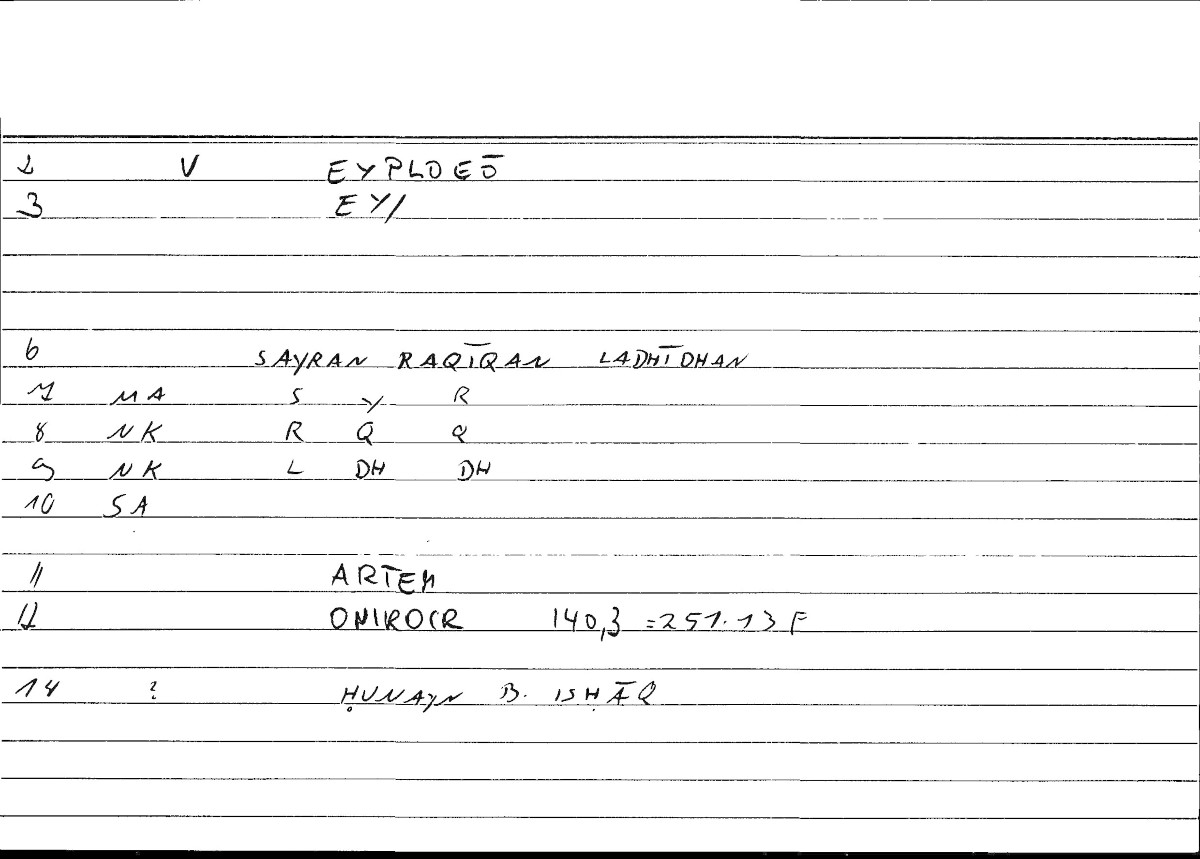 2 V EYPLOEŌ
3 EY/
6 SAYRAN RAQĪQAN LADHĪDHAN
7 MA S Y R
8 NK R Q Q
9 NK L DH DH
10 SA
11 ARTEM
12 ONIROCR 140,3 = 251.13 F
14 ? ḤUNAYN B. ISḤĀQ